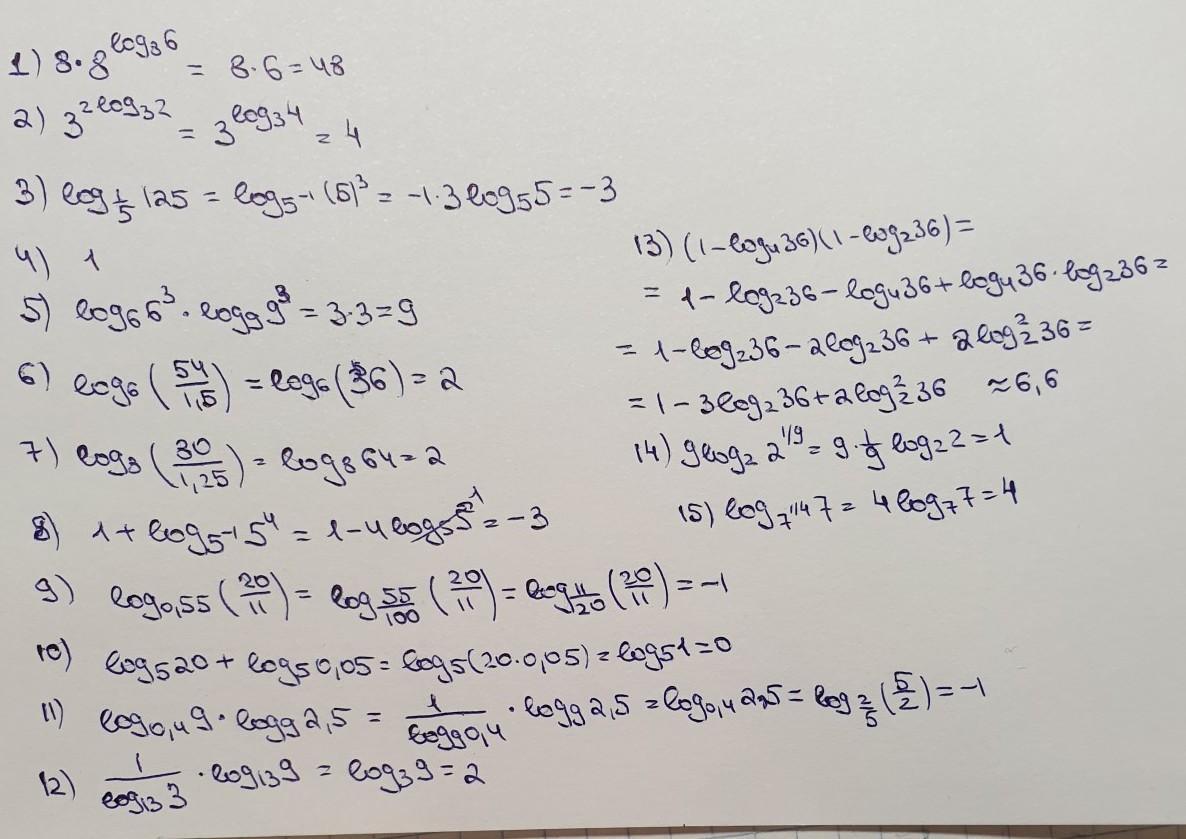 1) 8·8^log₈6 = 8·6=48
2) 3^2log₃2 = 3^log₃4 = 4
3) log_1/5 125 = log_5⁻¹ (5)³ = -1·3log₅5 = -3
4) 1
5) log₆6³ · log₉9³ = 3·3=9
6) log₆(54/1,5) = log₆(36) = 2
7) log₈(80/1,25) = log₈64=2
8) 1+log_5⁻¹ 5⁴ = 1-4log₅5¹ = -3
9) log_0,55 (20/11) = log_55/100 (20/11) = log_11/20 (20/11) = -1
10) log₅20 + log₅0,05 = log₅(20·0,05) = log₅1=0
11) log_0,4 9 · log₉2,5 = 1/log₉0,4 · log₉2,5 = log_0,4 2,5 = log_2/5 (5/2) = -1
12) 1/log₁₃3 · log₁₃9 = log₃9=2
13) (1-log₄36)(1-log₂36)=
= 1-log₂36-log₄36+log₄36·log₂36=
= 1-log₂36-2log₂36+ 2log₂²36=
= 1-3log₂36+2log₂²36 ≈6,6
14) 9log₂ 2^1/9 = 9·1/9 log₂2=1
15) log_7^1/4 7 = 4log₇7=4